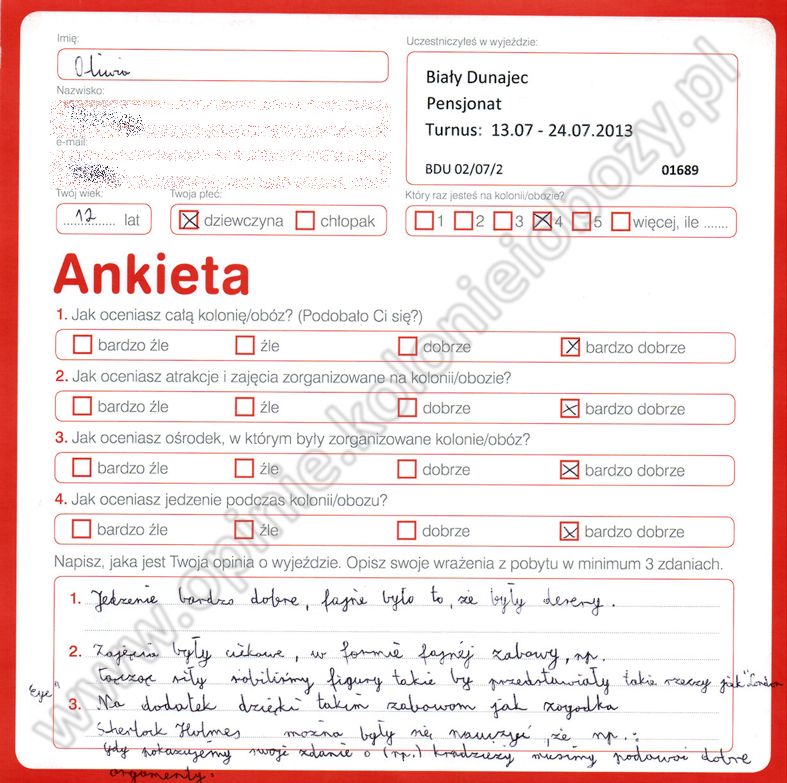 Imię:
Oliwia
Nazwisko:
e-mail:
Twój wiek:
12 lat
Twoja płeć:
dziewczyna chłopak
Uczestniczyłeś w wyjeździe:
Biały Dunajec
Pensjonat
Turnus: 13.07 - 24.07.2013
BDU 02/07/2 01689
Który raz jesteś na kolonii/obozie?
1 2 3 4 5 więcej, ile .......
Ankieta
1. Jak oceniasz całą kolonię/obóz? (Podobało Ci się?)
bardzo źle źle dobrze bardzo dobrze
2. Jak oceniasz atrakcje i zajęcia zorganizowane na kolonii/obozie?
bardzo źle źle dobrze bardzo dobrze
3. Jak oceniasz ośrodek, w którym były zorganizowane kolonie/obóz?
bardzo źle źle dobrze bardzo dobrze
4. Jak oceniasz jedzenie podczas kolonii/obozu?
bardzo źle źle dobrze bardzo dobrze
Napisz, jaka jest Twoja opinia o wyjeździe. Opisz swoje wrażenia z pobytu w minimum 3 zdaniach.
1. Jedzenie bardzo dobre, fajne było to, że były desery.
2. Zajęcia były ciekawe, w formie fajnej zabawy, np.
łącząc siły robiliśmy figury takie by przedstawiały takie rzeczy jak "London
Eye"
3. Na dodatek dzięki takim zabawom jak zagadka
Sherlock Holmes można były się nauczyć, że np.:
gdy pokazujemy swoje zdanie o (np.) kradzieży musimy podawać dobre
argumenty.
www.opinie.kolonieiobozy.pl